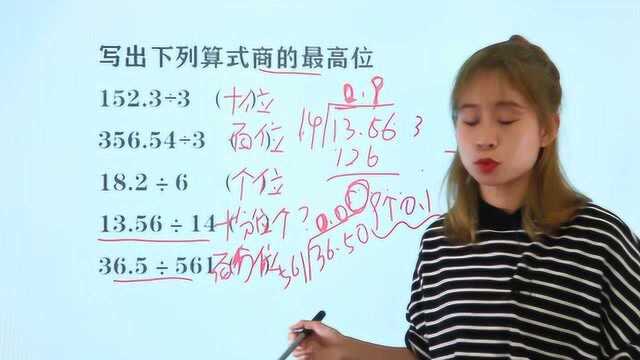 写出下列算式商的最高位
152.3÷3 (十)位
356.54÷3 百位
18.2÷6 (个)位
13.56÷14 十分位 个?
36.5÷561 百分位
0.9
14 13.56 3
126
9个0.1
0.0
561 36.50